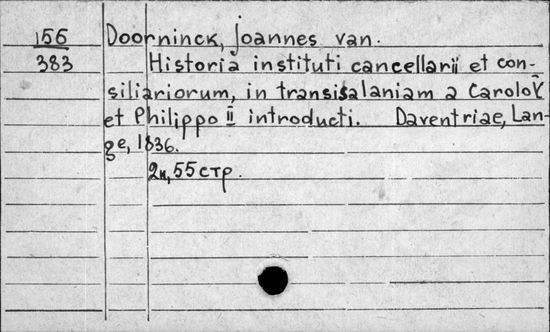 156 Doorninck, Joannes van.
383 Historia instituti cancellarii et con-
siliariorum, in transisalaniam a Carolo V
et Philippo II introducti. Daventriae, Lan-
ge, 1836.
2н, 55 стр.